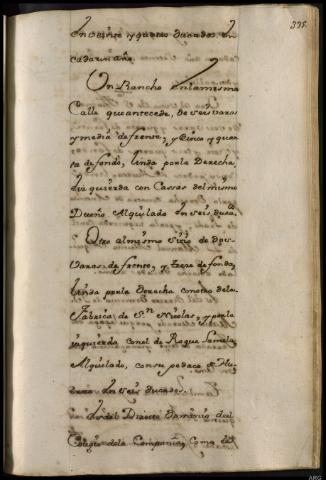 335.
en veinte y quatro ducados en
cada un año.
Un Rancho en la misma
Calle que antecede, de seis varas
y media de frente, y cinco y quar
ta de fondo, linda por la Derecha
Izquierda con Cassas del mismo
Dueño Alquilado en seis duca.
Otro al mismo sitio de dos
varas de frente, y treze de fondo,
linda por la Derecha con otro de la
Fabrica de Sn Nicolas, y por la
izquierda con el de Roque
Alquilado, con su pedazo de Hu
en seis ducados.
del Directo Dominio del
Colegio de la Compania, Como de
ARG